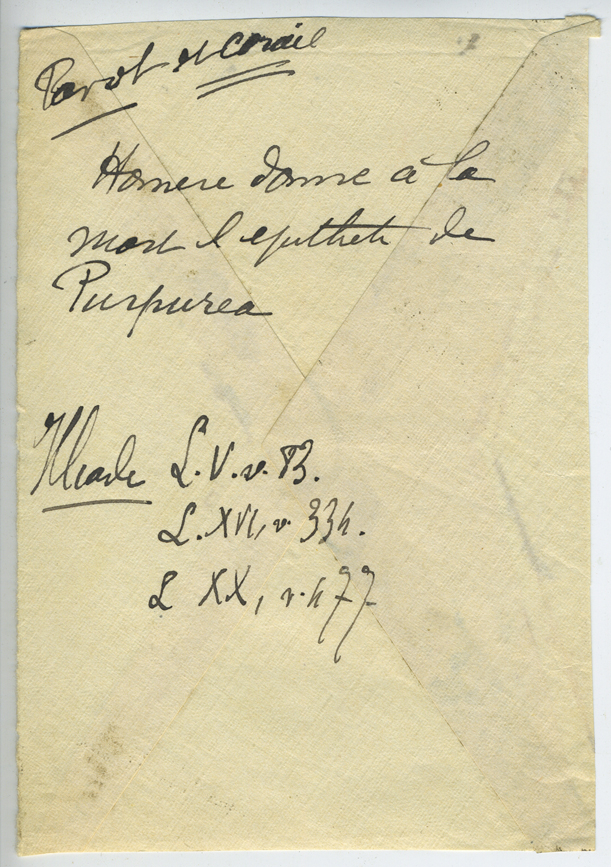 Pavot et corail
Homere donne à la
mort l epithete de
Purpurea
Iliade L. V. v. 83.
L. XVI, v. 334.
L XX, v. 477